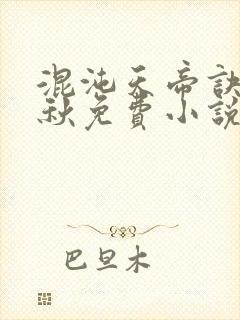 混沌天帝訣
秋免費小說
巴旦木